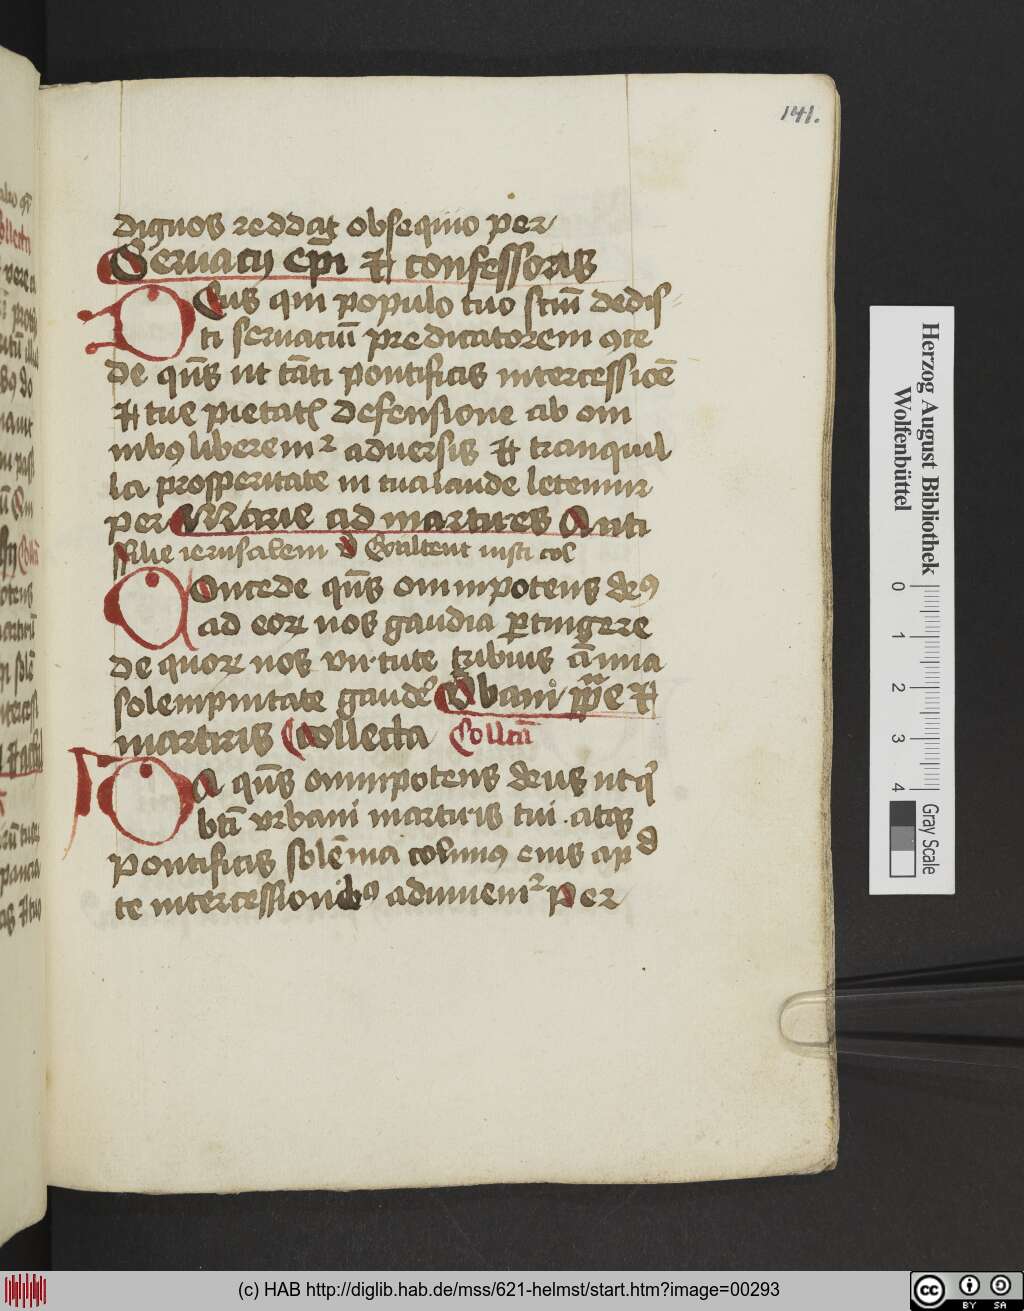 141.
dignos reddat obsequio per
Seruacij epi et confessoris
Deus qui populo tuo sctm̄ dedis
ti seruaciū predicatorem ꝯce
de qūs ut tāti pontificis intercessiōe
et tue pietatꝭ defensione ab om
nibꝰ liberemᷣ aduersis et tranquil
la prosperitate in tua laude letemur
per Marie ad martires Anti
filie ierusalem v Exultent iusti col
Concede qūs omnipotens deꝰ
ad eoꝝ nos gaudia ꝑtingere
de quoꝝ nos virtute tribuis annua
solempnitate gaudeʼ Vrbani ppe et
martiris Collecta Collcā
Da qūs omnipotens deus ut qͥ
bti vrbani martiris tui atqꝫ
pontificis solēnia colimꝰ eius ap d
te intercessionibꝰ adiuuemᷣ per
Herzog August Bibliothek
Wolfenbüttel
0 1 2 3 4
Gray Scale
(c) HAB http://diglib.hab.de/mss/621-helmst/start.htm?image=00293
cc BY SA